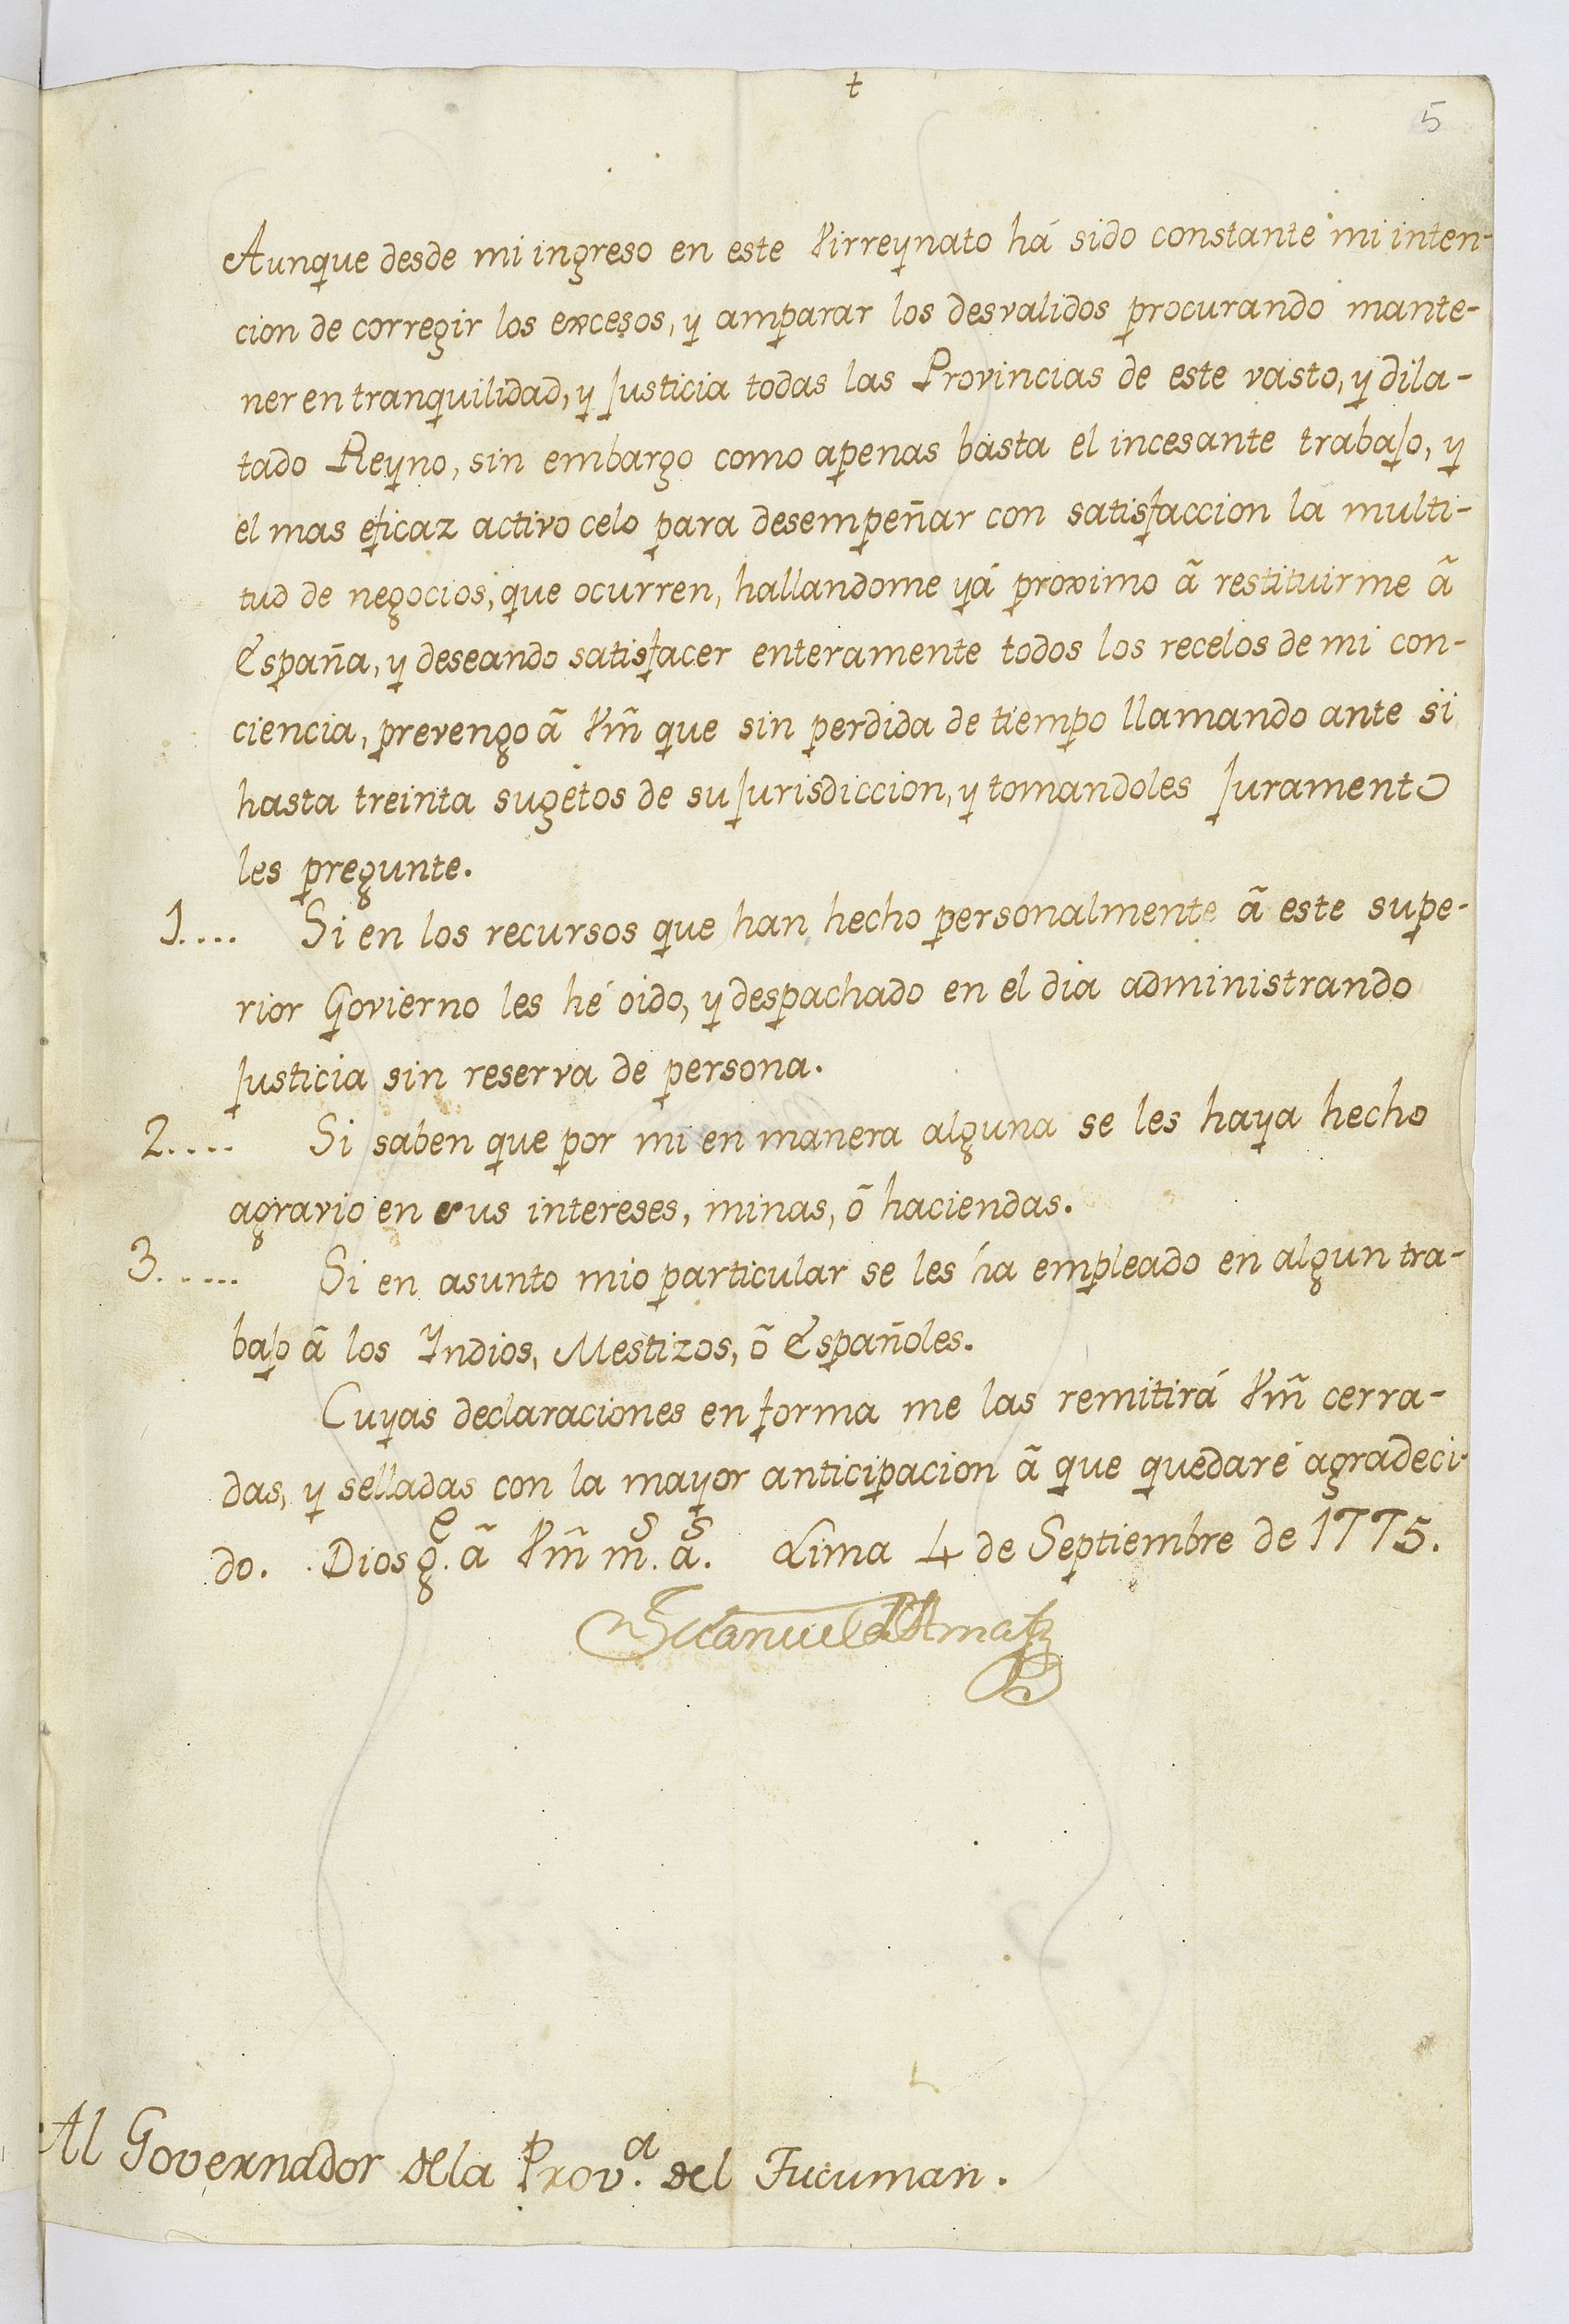 t
5
Aunque desde mi ingreso en este Virreynato há sido constante mi inten-
cion de corregir los excesos, y amparar los desvalidos procurando mante-
ner en tranquilidad, y Justicia todas las Provincias de este vasto, y dila-
tado Reyno, sin embargo como apenas basta el incesante trabajo, y
el mas eficaz activo celo para desempeñar con satisfaccion la multi-
tud de negocios, que ocurren, hallandome yá proximo ã restituirme ã
España, y deseando satisfacer enteramente todos los recelos de mi con-
ciencia, prevengo ã Vm̃ que sin perdida de tiempo llamando ante si
hasta treinta sugetos de su Jurisdiccion, y tomandoles Juramento
les pregunte.
1.... Si en los recursos que han hecho personalmente ã este supe-
rior Govierno les hé oido, y despachado en el dia administrando
Justicia sin reserva de persona.
2.... Si saben que por mi en manera alguna se les haya hecho
agravio en sus intereses, minas, õ haciendas.
3..... Si en asunto mio particular se les ha empleado en algun tra-
bajo ã los Yndios, Mestizos, õ Españoles.
Cuyas declaraciones en forma me las remitirá Vm̃ cerra-
das, y selladas con la mayor anticipacion ã que quedaré agradeci-
do. Dios g.e ã Vm̃ m.s a.s Lima 4 de Septiembre de 1775.
Manuel de Amat
Al Governador de la Prov.a del Tucuman.